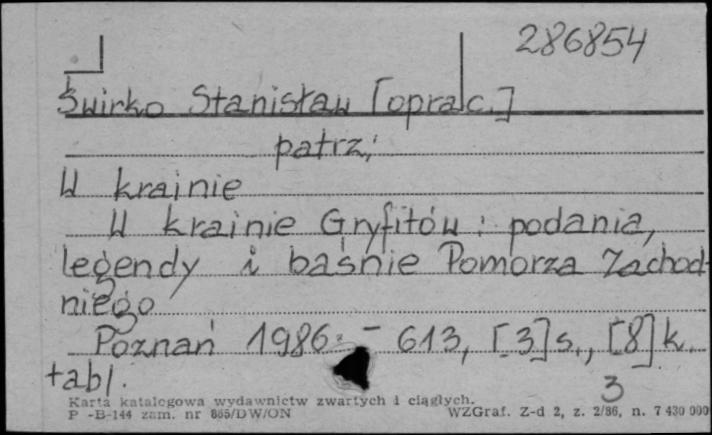 286854
Świrko Stanisław [oprac.]
patrz:
W krainie
W krainie Gryfitów : podania,
legendy i baśnie Pomorza Zachod-
niego
Poznań 1986. - 613, [3] s., [8] k.
tabl.
3
Karta katalogowa wydawnictw zwartych i ciągłych.
P -B-144 zam. nr 865/DW/ON WZGraf. Z-d 2, z. 2/86, n. 7 430 000